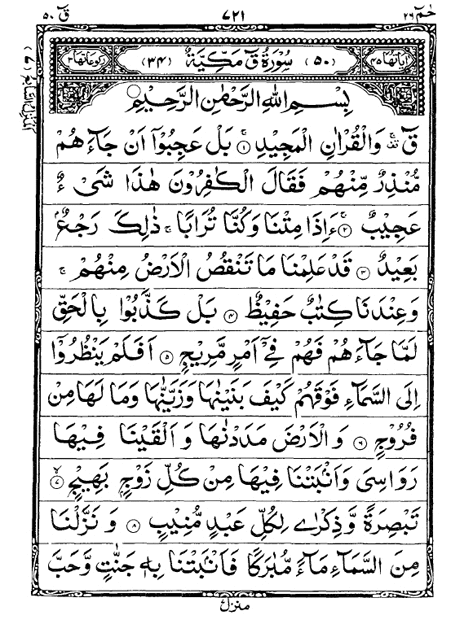 حٰمٓ ٢٦
٧٢١
قٓ ٥٠
اٰيَاتُهَا ٤٥
(٥٠) سُوْرَةُ قٓ مَكِّيَّةٌ (٣٤)
رُكُوْعَاتُهَا ٣
بِسْمِ اللّٰهِ الرَّحْمٰنِ الرَّحِيْمِ
قٓ وَالْقُرْاٰنِ الْمَجِيْدِ ١ بَلْ عَجِبُوْٓا اَنْ جَآءَهُمْ
مُّنْذِرٌ مِّنْهُمْ فَقَالَ الْكَافِرُوْنَ هٰذَا شَیْءٌ
عَجِيْبٌ ٢ ءَاِذَا مِتْنَا وَكُنَّا تُرَابًا ۚ ذٰلِكَ رَجْعٌۢ
بَعِيْدٌ ٣ قَدْ عَلِمْنَا مَا تَنْقُصُ الْاَرْضُ مِنْهُمْ ۚ
وَعِنْدَنَا كِتٰبٌ حَفِيْظٌ ٤ بَلْ كَذَّبُوْا بِالْحَقِّ
لَمَّا جَآءَهُمْ فَهُمْ فِیْٓ اَمْرٍ مَّرِيْجٍ ٥ اَفَلَمْ يَنْظُرُوْٓا
اِلَی السَّمَآءِ فَوْقَهُمْ كَيْفَ بَنَيْنٰهَا وَزَيَّنّٰهَا وَمَا لَهَا مِنْ
فُرُوْجٍ ٦ وَالْاَرْضَ مَدَدْنٰهَا وَاَلْقَيْنَا فِيْهَا
رَوَاسِیَ وَاَنْۢبَتْنَا فِيْهَا مِنْ كُلِّ زَوْجٍۭ بَهِيْجٍ ٧
تَبْصِرَةً وَّذِكْرٰی لِكُلِّ عَبْدٍ مُّنِيْبٍ ٨ وَنَزَّلْنَا
مِنَ السَّمَآءِ مَآءً مُّبٰرَكًا فَاَنْۢبَتْنَا بِهٖ جَنّٰتٍ وَّحَبَّ